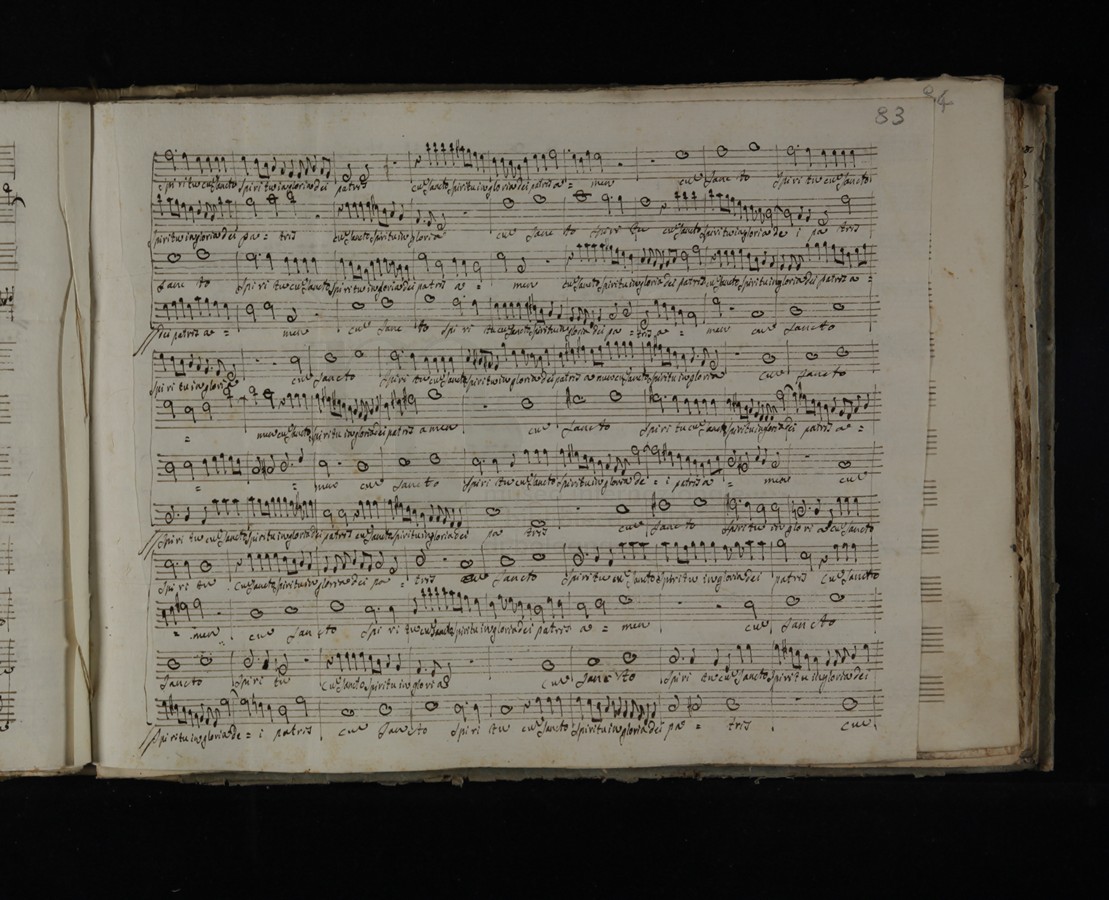 83
84
Spiritu cu Sancto Spiritu in gloria dei patris cu Sancto Spiritu in gloria dei patris a = men cu Sanc to Spi ri tu cu Sancto
Spiritu in gloria dei pa = tris cu Sancto Spiritu in gloria cu Sanc to Spiri tu cu Sancto Spiritu in gloria de i pa tris
Sanc to Spi ri tu cu Sancto Spiritu in gloria dei patris a = men cu Sancto Spiritu in gloria dei patris cu Sancto Spiritu in gloria dei patris a =
dei patris a = men cu Sanc to Spi ri tu cu Sancto Spiritu in gloria dei pa = tris a = men cu Sancto
Spi ri tu in gloria cu Sancto Spiri tu cu Sancto Spiritu in gloria dei patris a men cu Sancto Spiritu in gloria cu Sancto
= men cu Sancto Spiritu in gloria dei patris amen cu Sancto Spiri tu cu Sancto Spiritu in gloria dei patris a =
= = men cu Sancto Spiri tu cu Sancto Spiritu in gloria de = i patris a = men cu
Spiri tu cu Sancto Spiritu in gloria dei patris cu Sancto Spiritu in gloria dei pa tris cu Sanc to Spiritu in glori a cu Sancto
Spi ri tu cu Sancto Spiritu in gloria dei pa = tris cu Sancto Spiritu cu Sancto Spiritu in gloria dei patris cu Sancto
= men cu Sanc to Spi ri tu cu Sancto Spiritu in gloria dei patris a = men cu Sancto
Sancto Spiri tu cu Sancto Spiritu in gloria cu Sanc to Spiri tu cu Sancto Spiritu in gloria dei
Spiritu in gloria de = i patris cu Sancto Spi ri tu cu Sancto Spiritu in gloria dei pa = tris cu